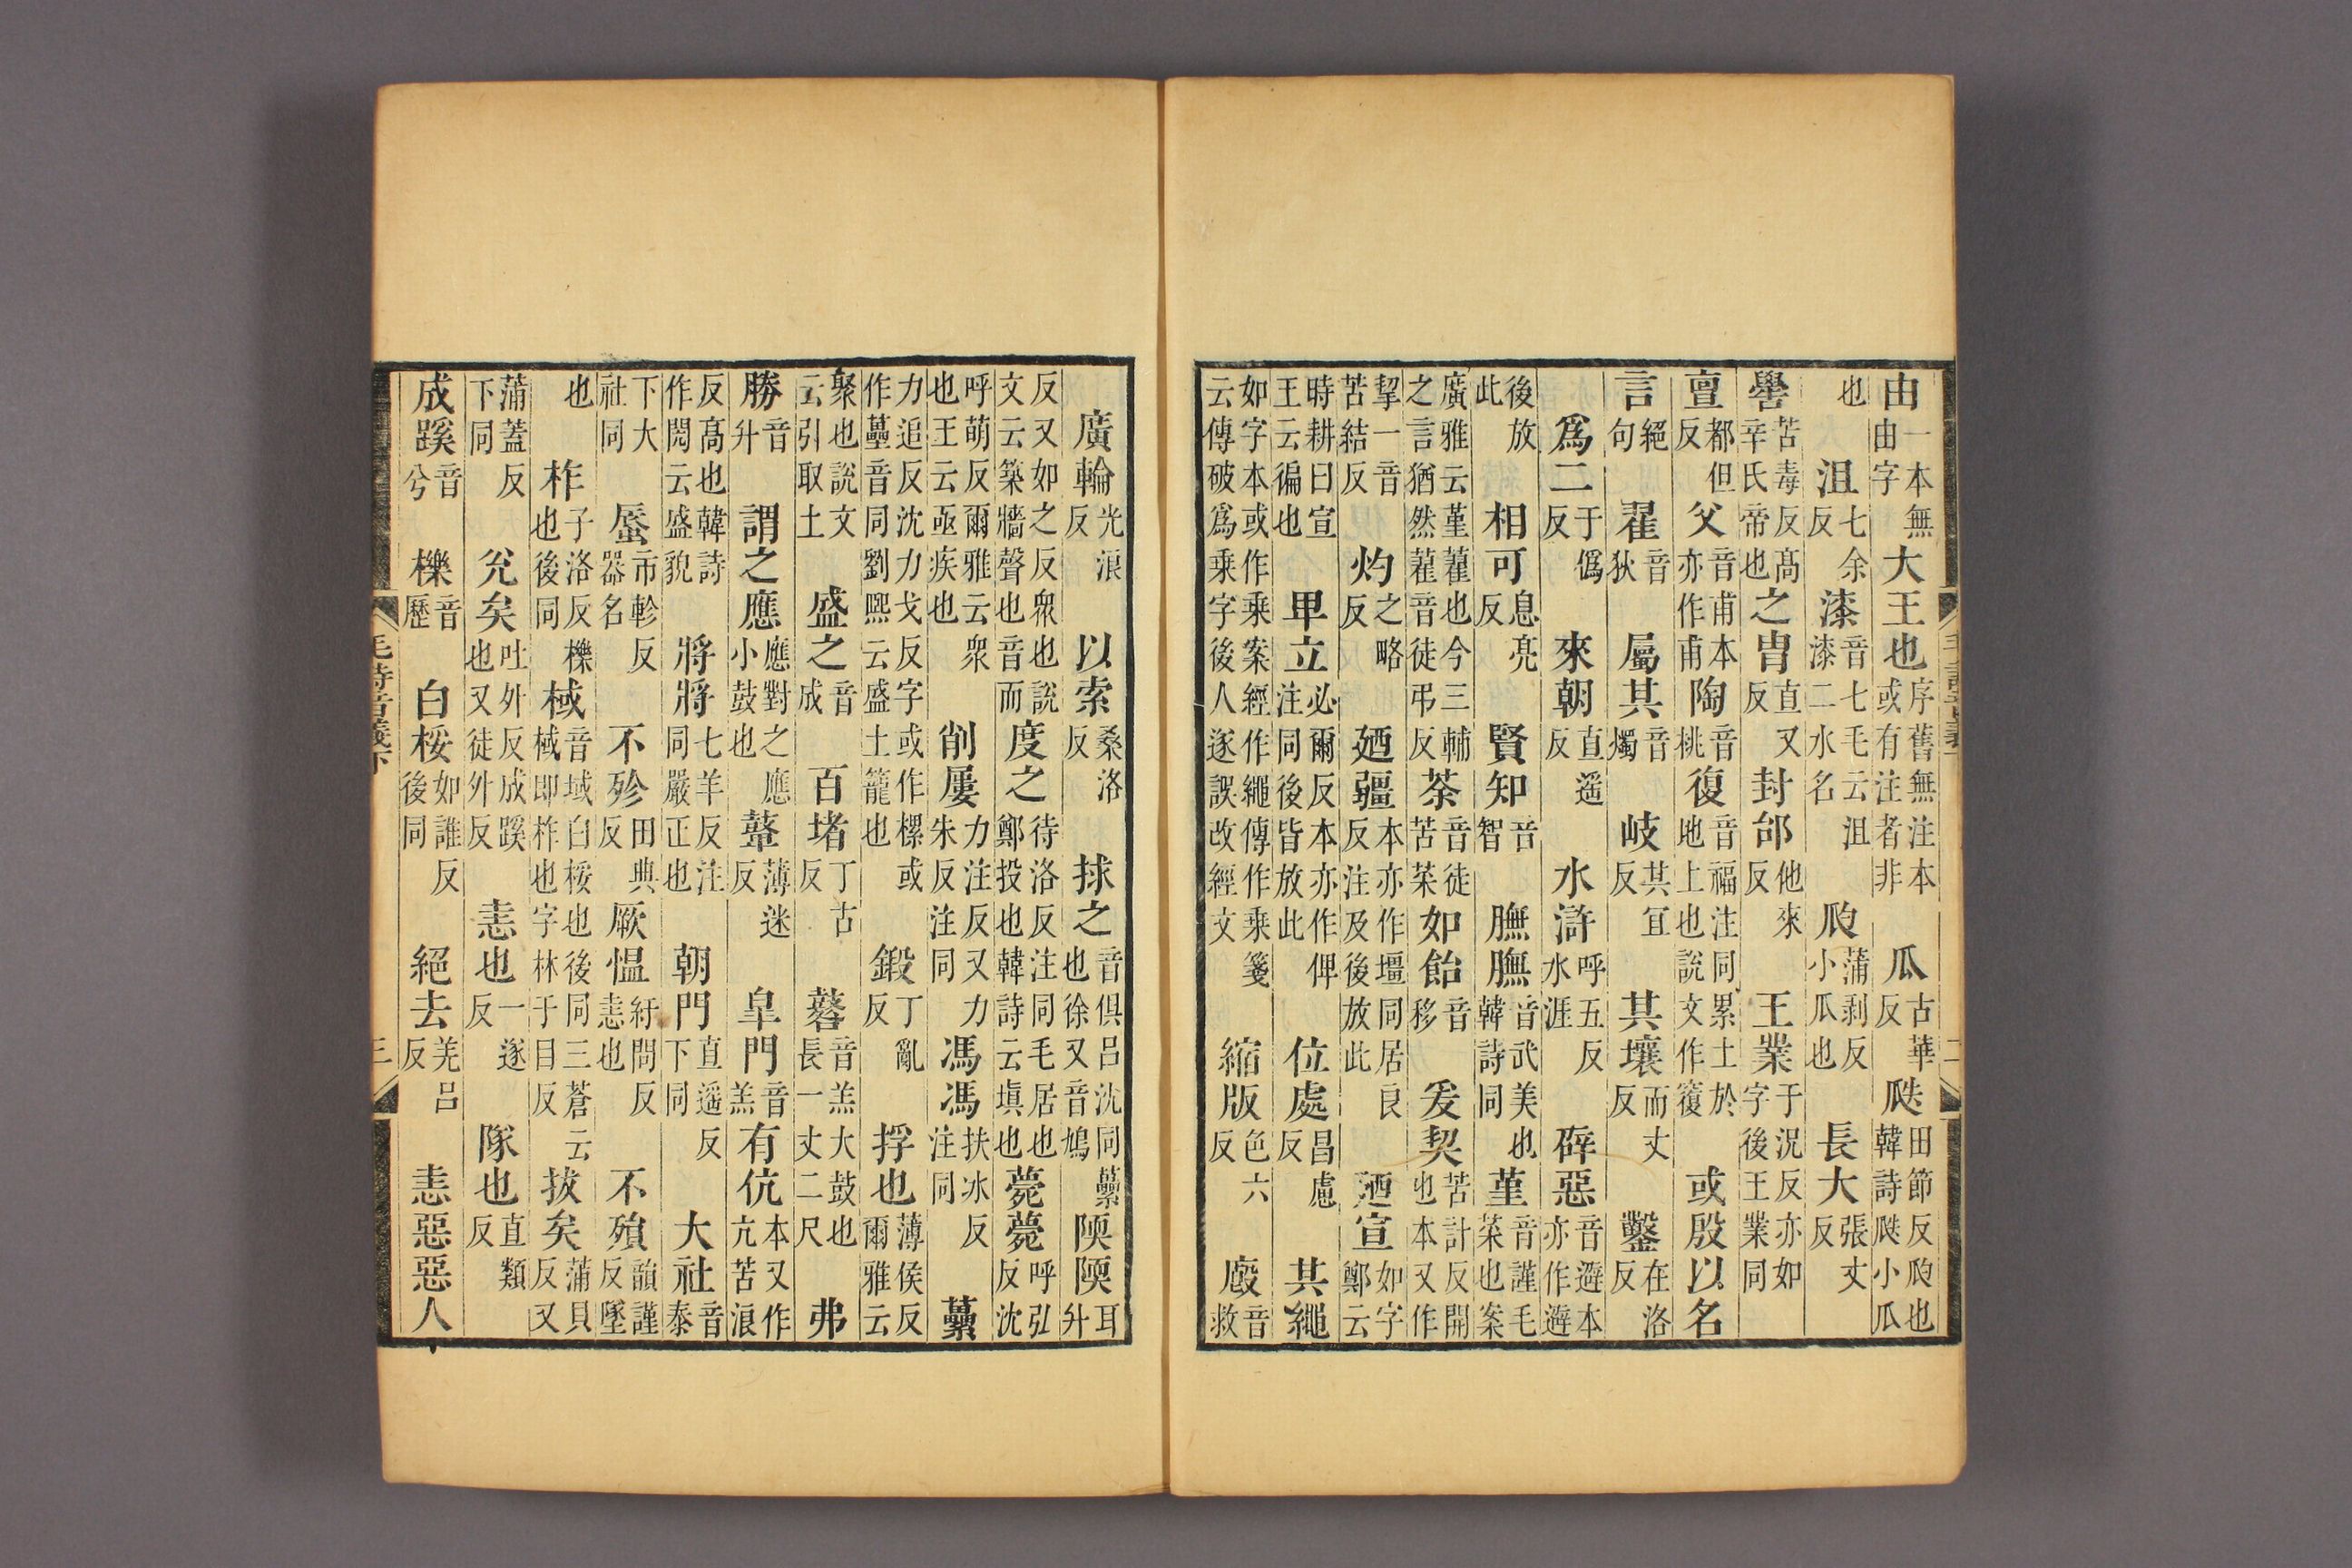 由一本無由字大王也序舊無注本或有注者非瓜古華反瓞田節反瓝也韓詩瓞小瓜
也沮七余反漆音七毛云沮漆二水名瓝蒲剥反小瓜也長大張丈反
嚳苦毒反髙辛氏帝也之胄直又反封邰他來反王業于況反亦如字後王業同
亶都但反父音甫本亦作甫陶音桃復音福注同累土於地上也說文作㙩或殷以名
言絕句翟音狄屬其音燭岐其宜反其壤而丈反鑿在洛反
爲二于僞反來朝直遥反水滸呼五反水涯辟惡音避本亦作避
後放此相可息亮反賢知音智膴膴音武美也韓詩同堇音謹毛菜也案
廣雅云堇藋也今三輔之言猶然藋音徒弔反荼音徒苦菜如飴音移爰契苦計反開也本又作
挈一音苦結反灼之略反廼疆本亦作壃同居良反注及後放此廼宣如字鄭云
時耕曰宣王云徧也卑立必爾反本亦作俾注同後皆放此位處昌慮反其繩
如字本或作乘案經作繩傳作乘箋云傳破爲乘字後人遂誤改經文縮版色六反廏音救
廣輪光浪反以索桑洛反捄之音俱呂沈同虆也徐又音鳩陾陾耳升
反又如之反衆也說文云築牆聲也音而度之待洛反注同毛居也鄭投也韓詩云塡也薨薨呼弘反沈
呼萌反爾雅云衆也王云亟疾也削屢力注反又力朱反注同馮馮扶冰反注同虆
力追反沈力戈反字或作樏或作蘽音同劉熙云盛土籠也鍛丁亂反捊也薄侯反爾雅云
聚也說文云引取土盛之音成百堵丁古反鼛音羔大鼓也長一丈二尺弗
勝音升謂之應應對之應小鼓也鼙薄迷反皐門音羔有伉本又作亢苦浪
反髙也韓詩作閌云盛貌將將七羊反注同嚴正也朝門直遥反下同大社音泰
下大社同蜃市軫反器名不殄田典反厥愠紆問反恚也不殞韻謹反墜
也柞子洛反櫟也後同棫音域白桵也後同三蒼云棫即柞也字林于目反拔矣蒲貝反又
蒲蓋反下同兊矣吐外反成蹊也又徒外反恚也一遂反隊也直類反
成蹊音兮櫟音歷白桵如誰反後同絕去羌呂反恚惡惡人
毛詩音義下 三